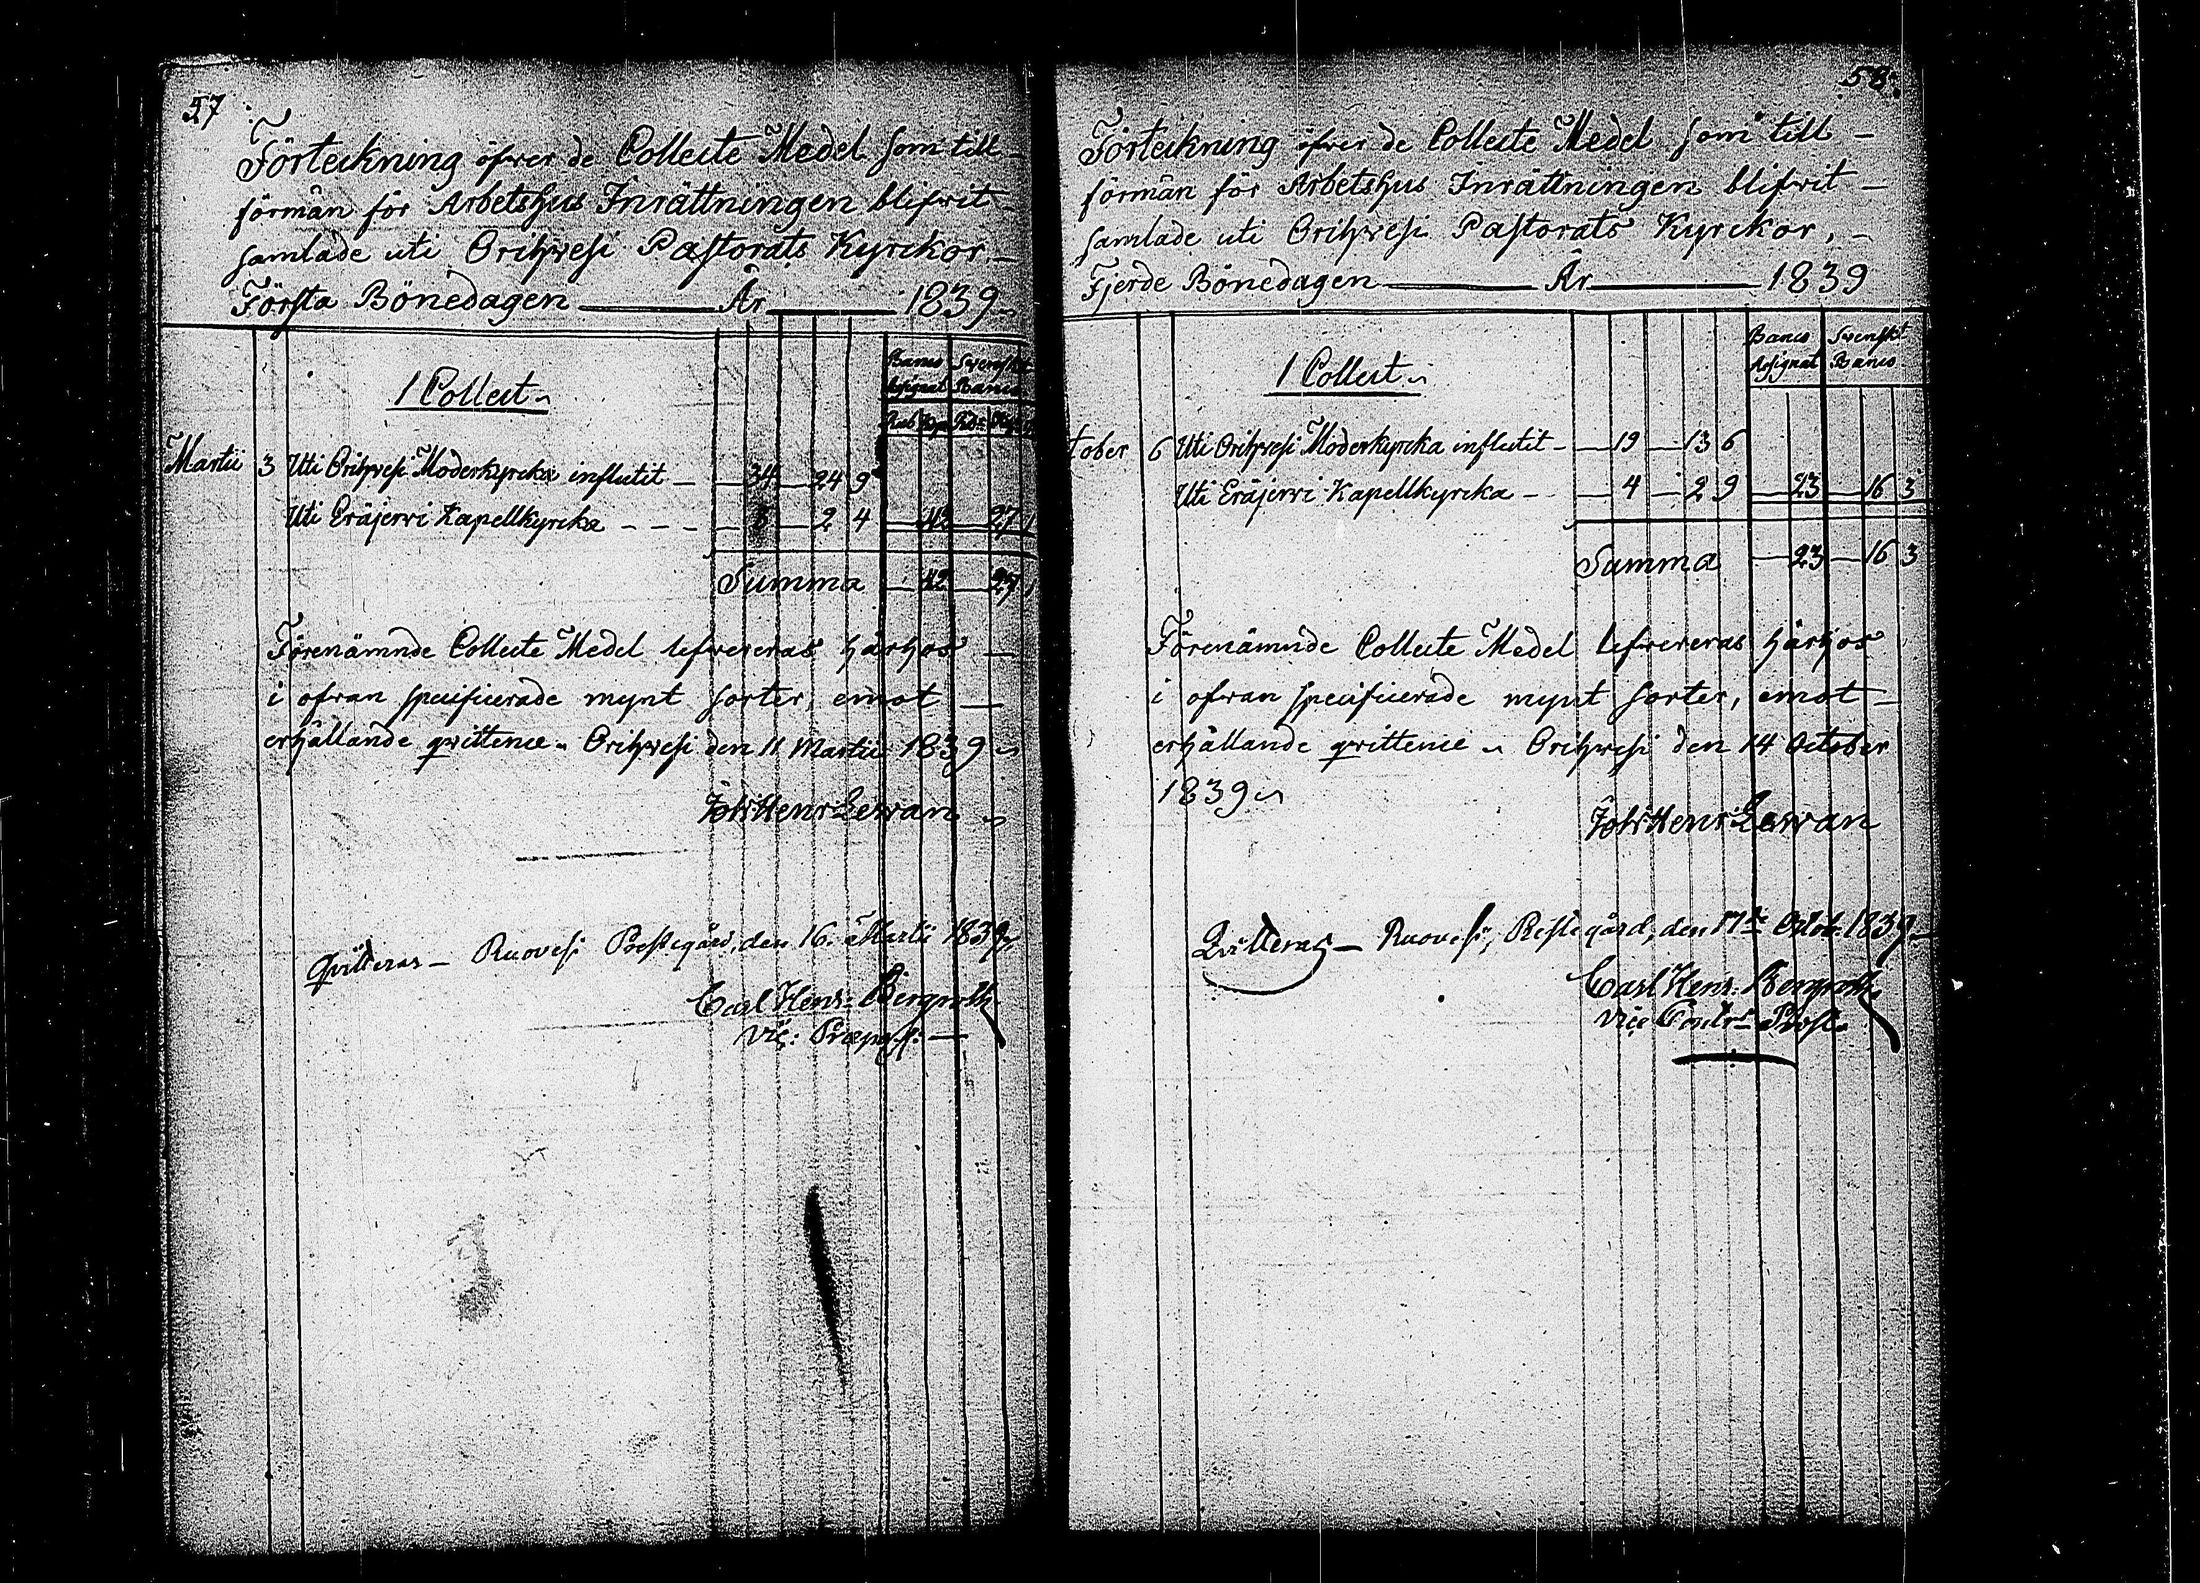 57
Förteckning öfver de Collecte Medel som till
förmån för Arbetshus Inrättningen blifwit
samlade uti Orihwesi Pastorats Kyrckor
Första Bönedagen År 1839
Banco Assignat Svenskt Banco
Rub Kop Rdr
1 Collect
Martii 3 Uti Orihwesi Moderkyrcka influtit 34 24 9
Uti Eräjerwi Kapellkyrcka 8 2 4 42 27 1
Summa 42 27 1
Förenämnde Collecte Medel lefwereras härhos
i ofwan specificerade mynt sorter, emot
erhållande qvittence. Orihwesi den 11 Martii 1839
Joh: Henr: Lewan
Qvitteras Ruovesi Prestegård, den 16. Martii 1839
Carl Henr: Bergroth
Vic: Præpos:
58
Förteckning öfver de Collecte Medel som till
förmån för Arbetshus Inrättningen blifwit
samlade uti Orihwesi Pastorats Kyrckor,
Fjerde Bönedagen År 1839
Banco Assignat Svenskt Banco
1 Collect
tober 6 Uti Orihwesi Moderkyrcka influtit 19 13 6
Uti Eräjerwi Kapellkyrcka 4 2 9 23 16 3
Summa 23 16 3
Förenämnde Collecte Medel lefwereras härhos
i ofwan specificerade mynt sorter, emot
erhållande qvittence Orihwesi den 14 October
1839
Joh: Henr: Lewan
Qvitteras Ruovesi, Prestegård, den 17de Octob. 1839
Carl Henr. Bergroth
Vice Contr. Prost